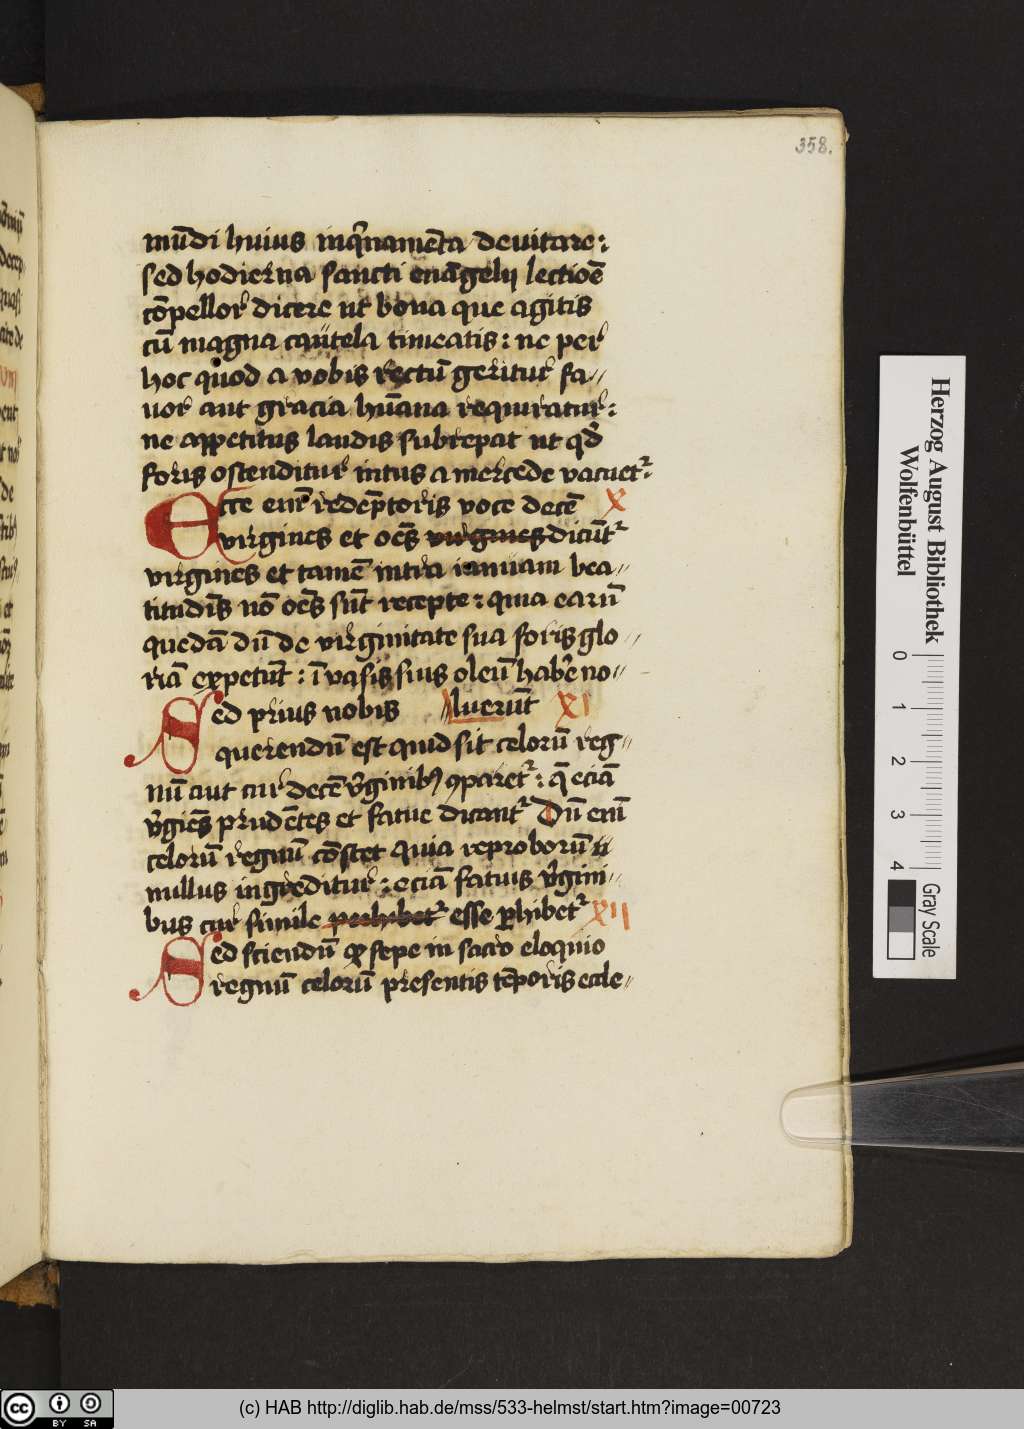 358.
mūdi huius inqͥnamēta deuitare:
sed hodierna sancti euāgelij lectioē
cōpellor dicere ut bona que agitis
cū magna cautela timeatis: ne per
hoc quod a vobis rectū geritur fa//
uor aut gracia hūana requiratur:
ne appetitus laudis subrepat ut qđ
foris ostenditur intus a mercede vacuet᷑:
Ecce eni᷑ redēptoris voce decē X
virgines et oēs virgines dicūt᷑
virgines et tamē intra ianuam bea//
titudīs nō oēs sūt recepte: quia earū
quedā dū de virginitate sua foris glo//
riā expetūt: ī vasis suis oleū habēre no//
Sed prius nobis //luerūt XI
querendū est quid sit celorū reg//
nū aut cur decē v̓ginibꝫ ꝯparet᷑: q̄ eciā
v̓giēs prudētes et fatue dicant᷑ Dū eni᷑
celorū regnū cōstet quia reproborū
nullus ingreditur: eciā fatuis v̓gini//
bus cur simile perhibet᷑ esse ꝑhibet᷑ XII
Sed sciendū ꝙ sepe in sacro eloquio
regnū celorū presentis tēporis eccle//
Herzog August Bibliothek
Wolfenbüttel
0 1 2 3 4
Gray Scale
cc BY SA
(c) HAB http://diglib.hab.de/mss/533-helmst/start.htm?image=00723